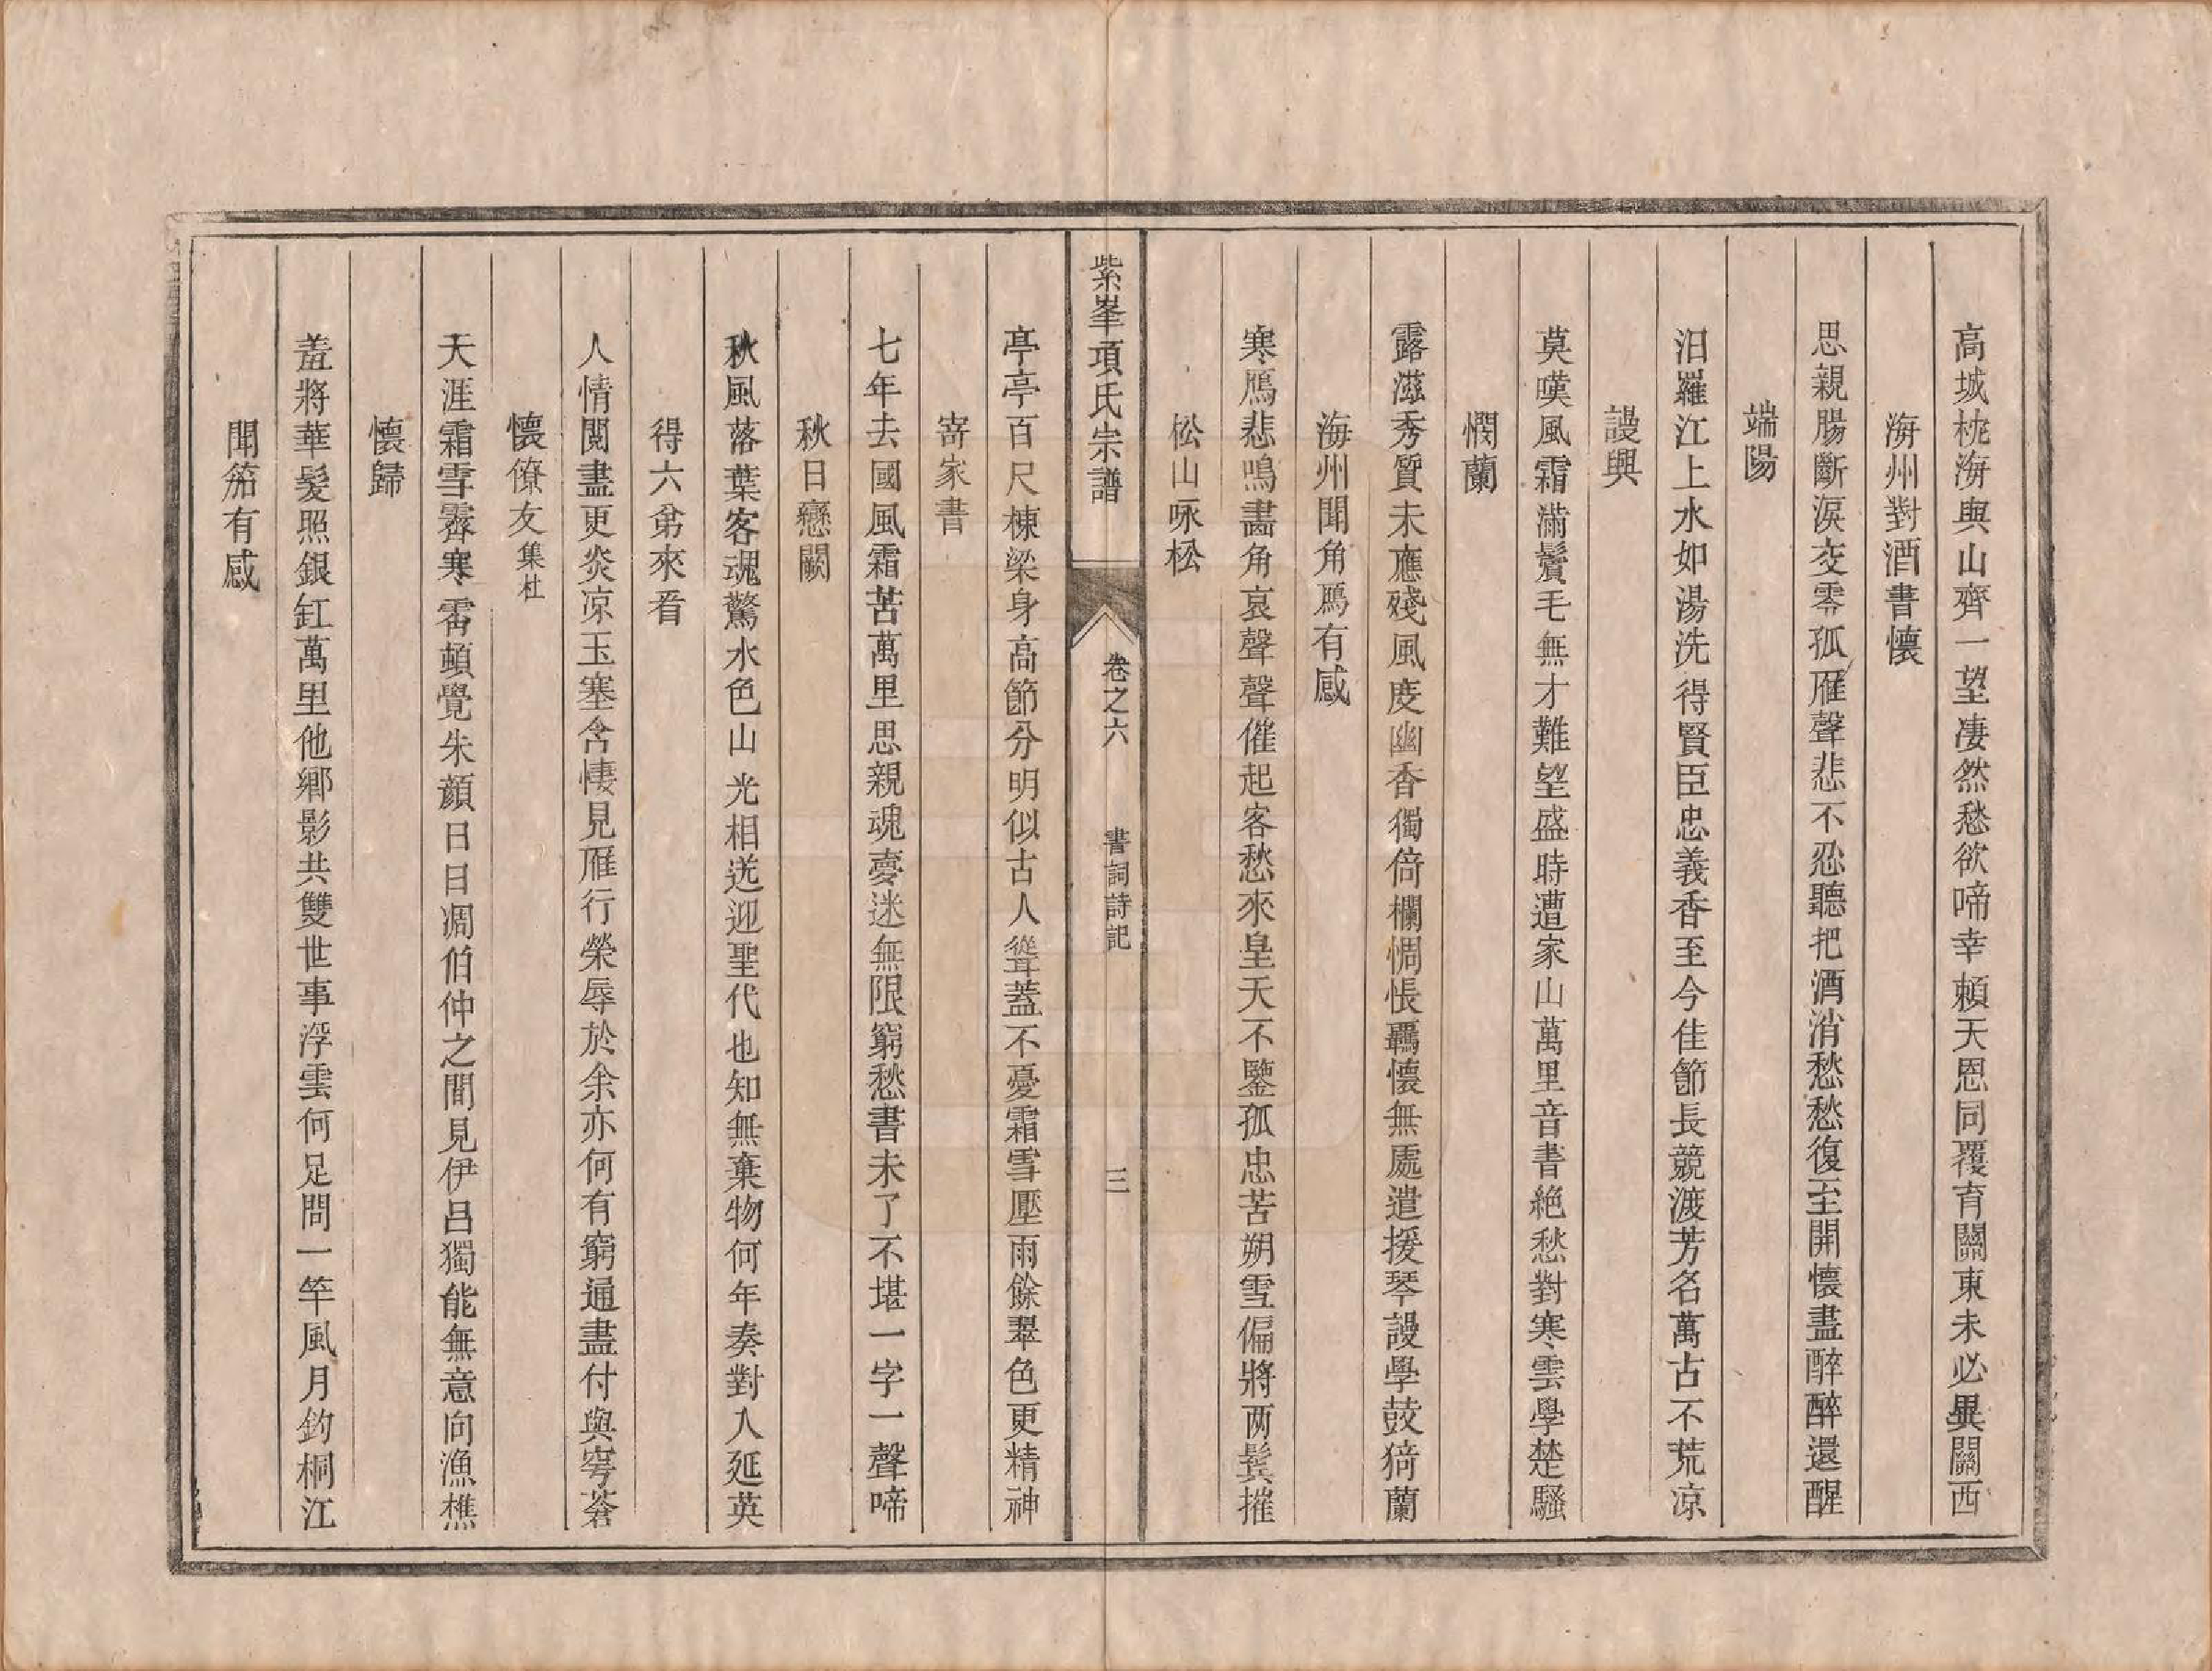 高城桃海與山齊一望凄然愁欲啼幸賴天恩同覆育關東未必異關西
海州對酒書懷
思親腸斷淚交零孤雁聲悲不忍聽把酒消愁愁復至開懷盡醉醉還醒
端陽
汨羅江上水如湯洗得賢臣忠義香至今佳節長競渡芳名萬古不荒凉
謾興
莫嘆風霜滿鬢毛無才難望盛時遭家山萬里音書絶愁對寒雲學楚騷
憫蘭
露滋秀質未應殘風度幽香獨倚欄惆悵羈懷無處遣援琴謾學鼓猗蘭
海州聞角鴈有感
寒鴈悲鳴畵角哀聲聲催起客愁來皇天不鑒孤忠苦朔雪偏將两鬓摧
松山咏松
紫峯項氏宗譜
卷之六
書詞詩記
三
亭亭百尺棟梁身高節分明似古人聳蓋不憂霜雪壓雨餘翠色更精神
寄家書
七年去國風霜苦萬里思親魂夣迷無限窮愁書未了不堪一字一聲啼
秋日戀闕
秋風落葉客魂驚水色山光相送迎聖代也知無棄物何年奏對入延英
得六弟來看
人情閱盡更炎凉玉塞含悽見雁行榮辱於余亦何有窮通盡付與穹蒼
懷僚友集杜
天涯霜雪霽寒霄頓覺朱顔日日凋伯仲之間見伊吕獨能無意向漁樵
懷歸
羞將華髮照銀缸萬里他鄉影共雙世事浮雲何足問一竿風月釣桐江
聞笳有感